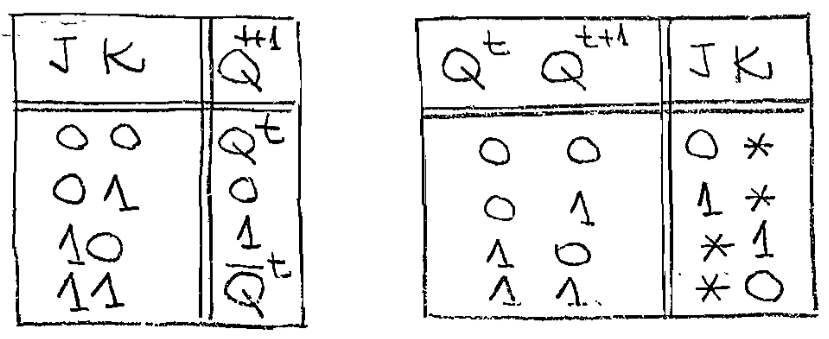 J K Q^{t+1}
0 0 Q^t
0 1 0
1 0 1
1 1 \overline{Q}^t
Q^t Q^{t+1} J K
0 0 0 *
0 1 1 *
1 0 * 1
1 1 * 0